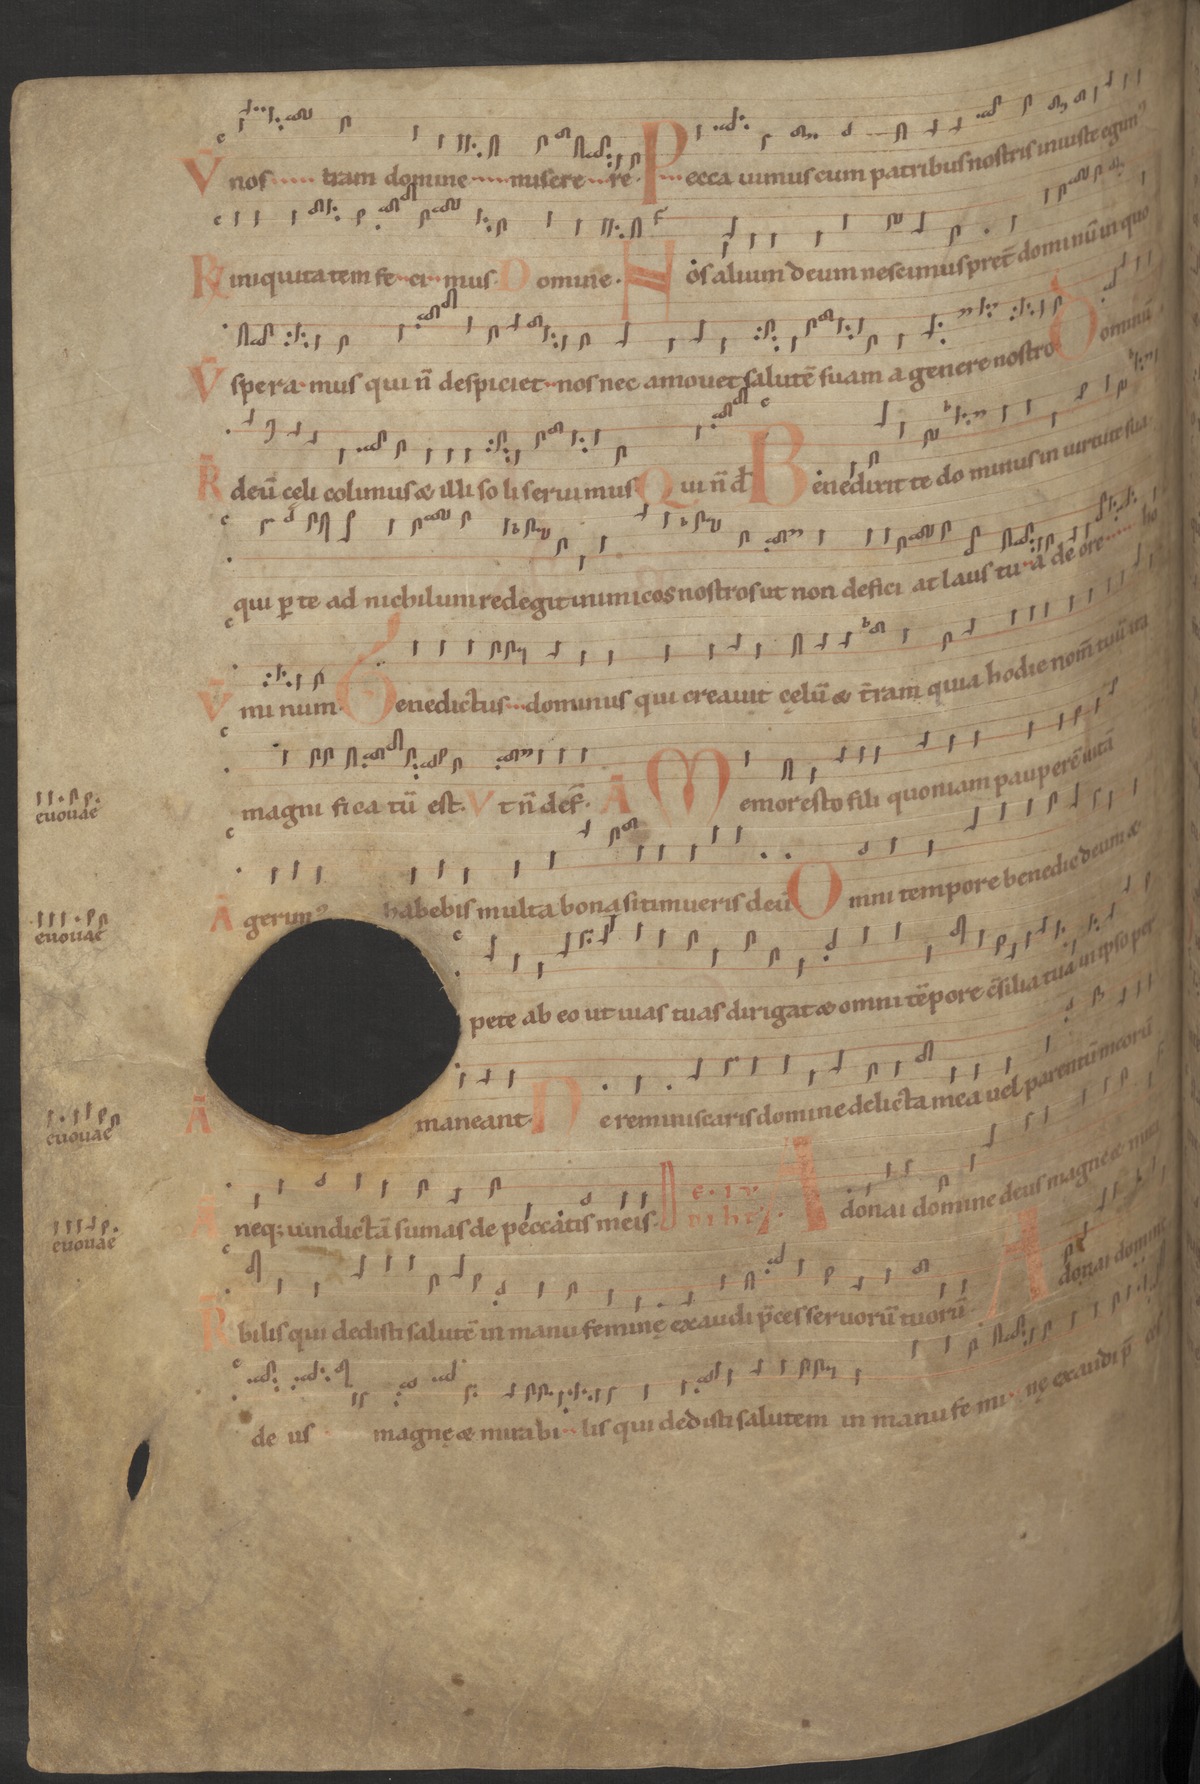 V̄ nos tram domine misere re Pecca uimus cum patribus nostris iniuste egim᷒
R̄ iniquitatem fe ci mus Domine. Nos alium deum nescimus pret̄ dominū in quo
V̄ spera mus qui n̄ despiciet nos nec amouet salutē suam a genere nostro Dominū
R̄ deū cęli colimus & illi so li seruimus Qui n̄ d̄ Benedixit te do minus in uirtute sua
qui p te ad nichilum redegit inimicos nostros ut non defici at laus tu a de ore ho
V̄ mi num Benedictus dominus qui creauit cęlū & t̄ram quia hodie nom̄ tuū ita
magni fica tū est. Vt n̄ def̄. Ā Memoresto fili quoniam pauperē uitā
euouae
Ā gerim᷒ habebis multa bona si timueris deū Omni tempore benedic deum &
euouae
pete ab eo ut uias tuas dirigat & omni tēpore c̄silia tua in ipso per
Ā maneant. Ne reminiscaris domine delicta mea uel parentū meorū
euouae
Ā neq; uindictā sumas de peccatis meis. Adonai domine deus magne & mira
euouae
R̄ bilis qui dedisti salutē in manu feminę exaudi p̄ces seruorū tuorū Adonai domine
de us magnę & mirabi lis qui dedisti salutem in manu fe mi nę exaudi p̄ ces